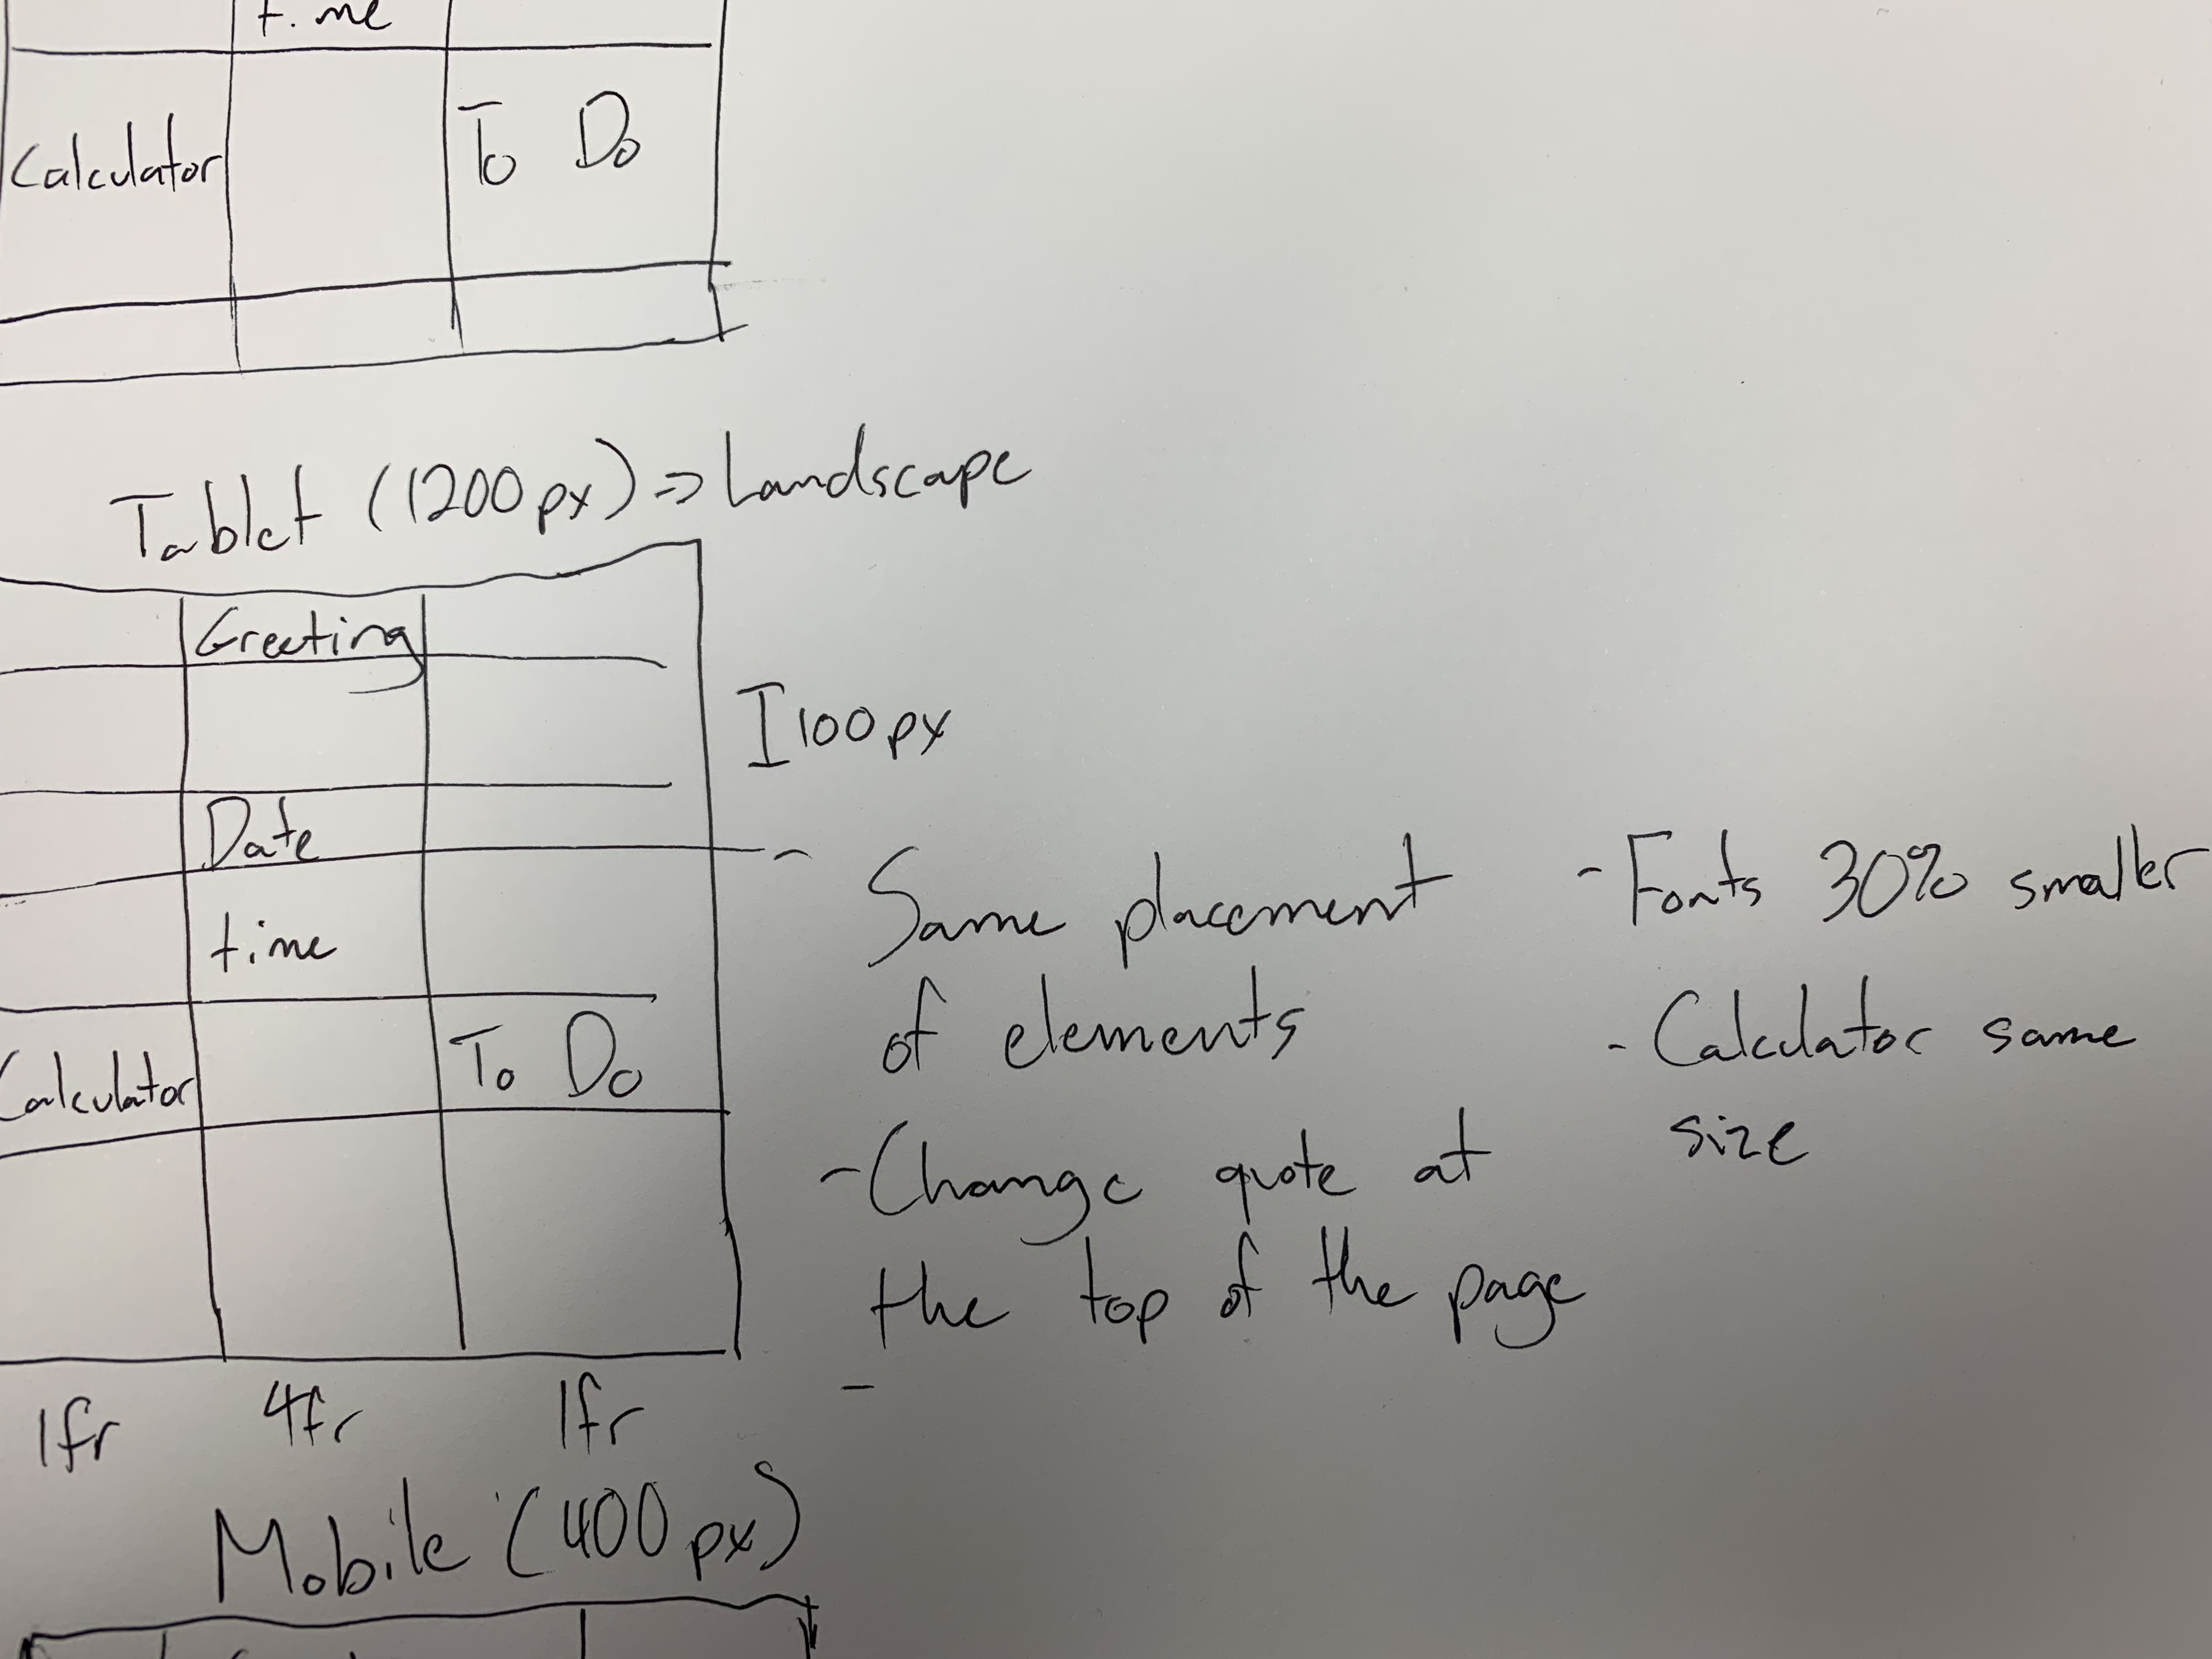 time
Calculator
To Do
Tablet (1200px) => Landscape
Greeting
I 100px
Date
time
Calculator
To Do
1fr 4fr 1fr
- Same placement
of elements
- Change quote at
the top of the page
-
- Fonts 30% smaller
- Calculator same
size
Mobile (400px)